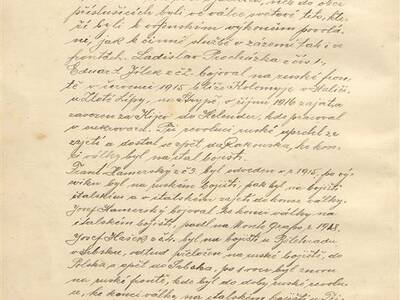 příslušících byli ve válce světové tito, kte-
ří byli k vojenským výkonům povolá-
ni, jak k činné službě v zázemí tak i na
frontách. Ladislav Procházka z čís. 1,
Eduard Jílek z č. bojoval na ruské fron-
tě v červnu 1915 blíže Kolomyje v Haliči,
u Zlaté Lípy, na Strypě, v říjnu 1916 zajat a
zavezen za Kijev do kde pracoval
v cukrovaru. Při revoluci ruské uprchl ze
zajetí a dostal se zpět do Rakouska, ke kon-
ci války byl na ital. bojišti.
Frant. Hamerský z č. 3. byl odveden v r. 1915, po vý-
cviku byl na ruském bojišti, pak byl na bojišti
italském a v italském zajetí do konce války.
Josef Hamerský bojoval ke konci války na
italském bojišti, padl na Monte Grapa r. 1918.
Josef Hašek z č. 4. byl na bojišti u Bělehradu
v Srbsku, odtud přeložen na ruské bojiště, do
Polska a zpět do Srbska, po 1 roce byl znovu
na ruské frontě, kde byl do doby ruské revolu-
ce, ke konci války na italském bojišti. Při